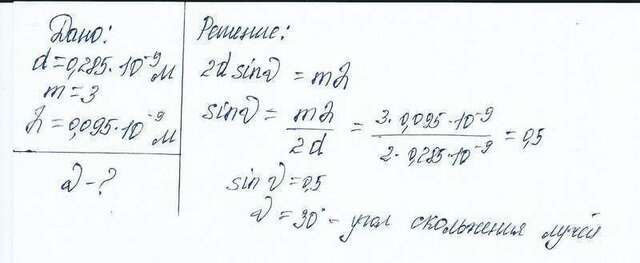 Дано:
d=0,285·10⁻⁹ м
m=3
λ=0,095·10⁻⁹ м
ϑ-?
Решение:
2d sinϑ = mλ
sinϑ = mλ / 2d = 3·0,095·10⁻⁹ / 2·0,285·10⁻⁹ = 0,5
sin ϑ = 0,5
ϑ = 30° - угол скольжения лучей